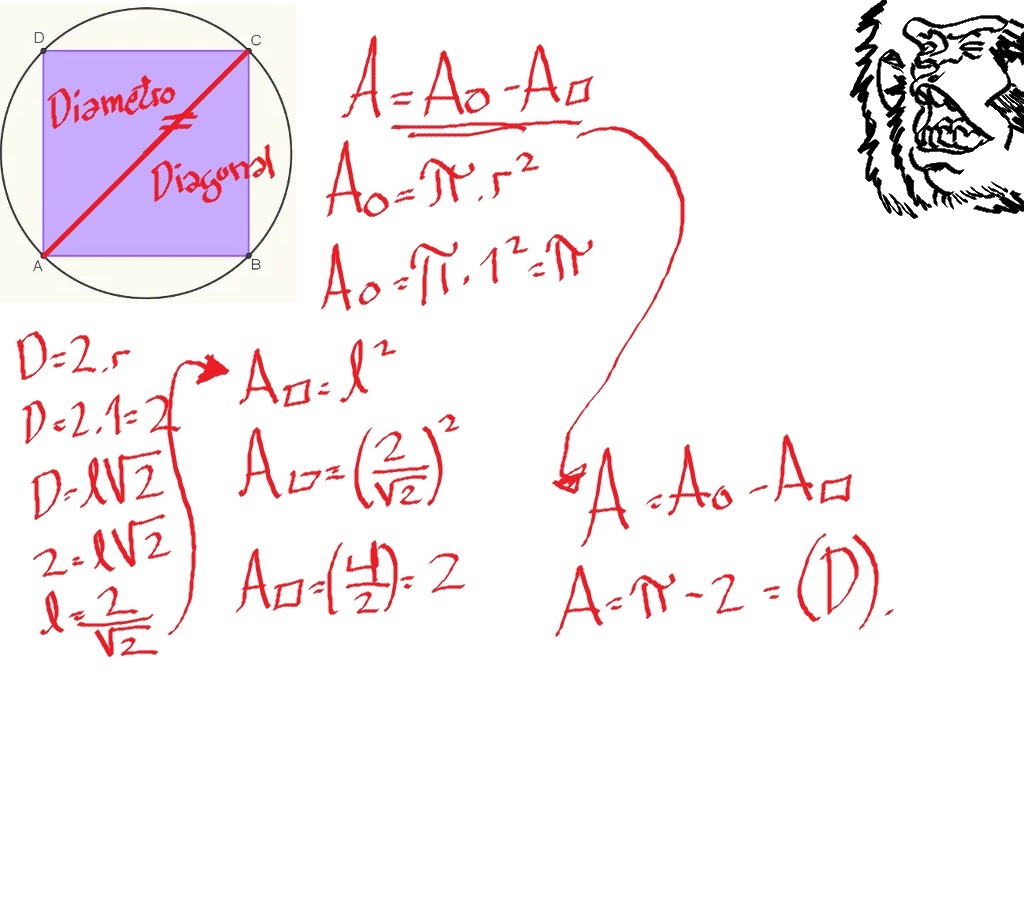 D
C
Diametro
Diagonal
A
B
A = A○ - A□
A○ = π.r²
A○ = π.1² = π
D = 2.r
D = 2.1 = 2
D = l√2
2 = l√2
l = 2/√2
A□ = l²
A□ = (2/√2)²
A□ = (4/2) = 2
A = A○ - A□
A = π - 2 = (D).